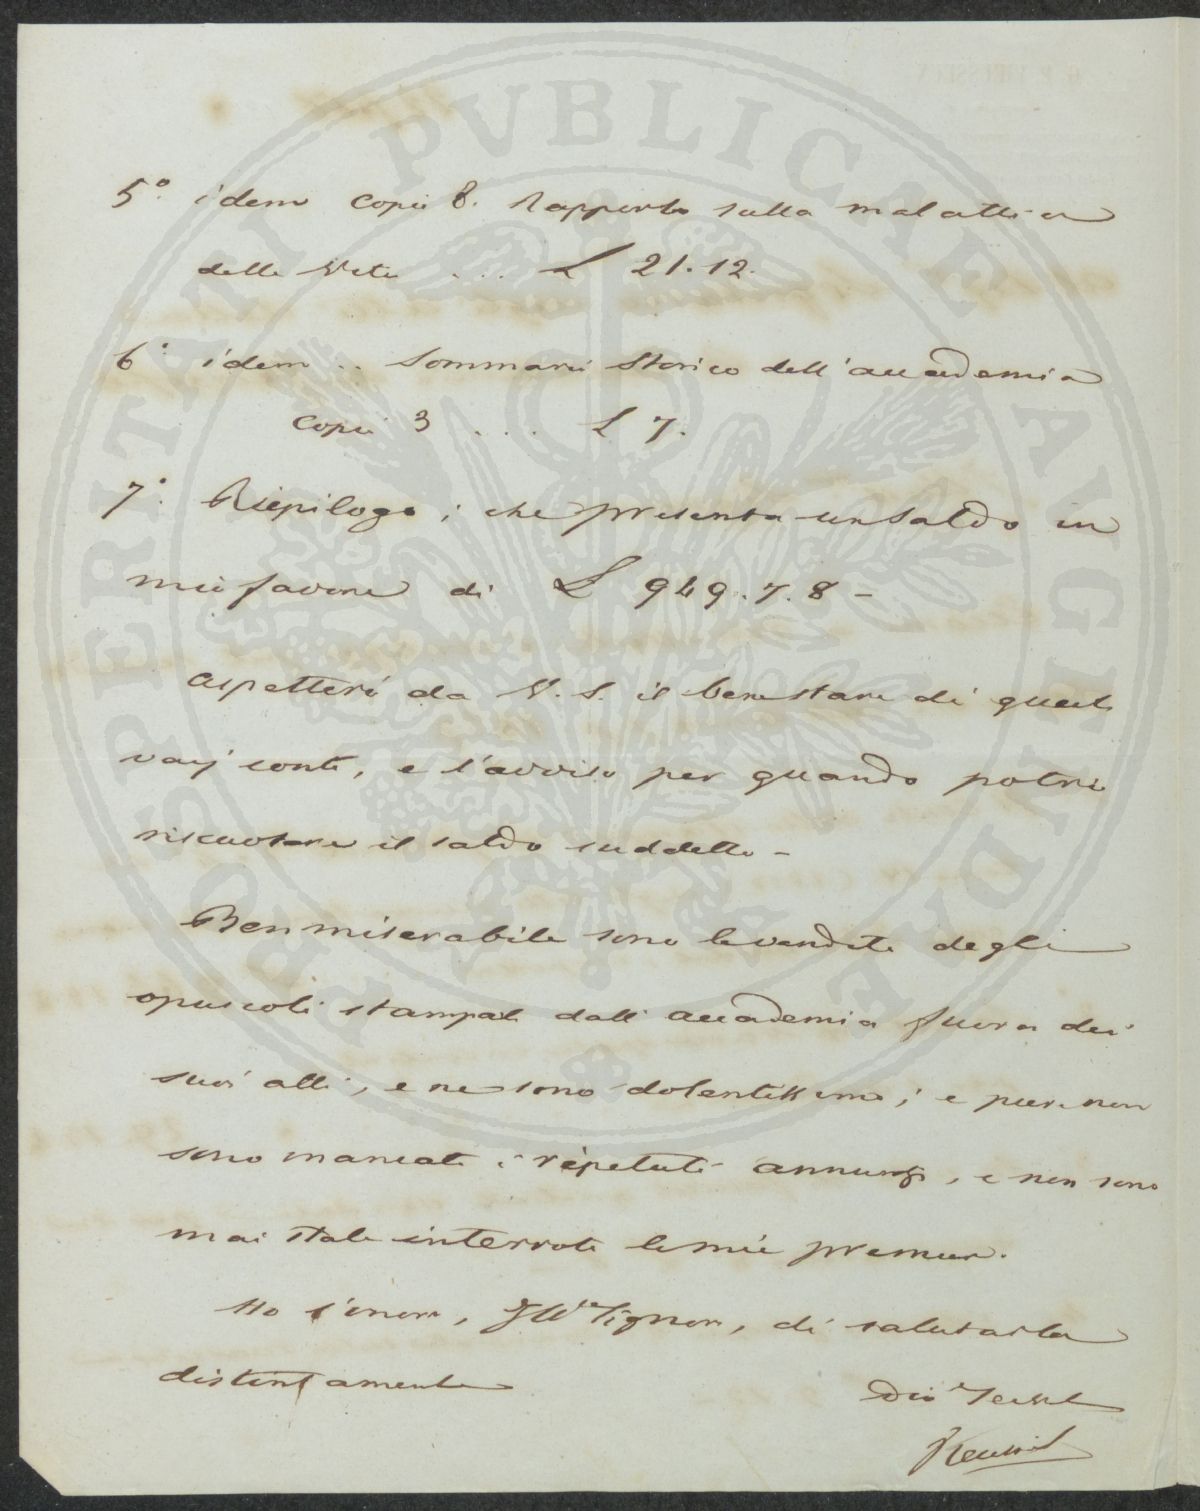 PROSPERITATI PUBLICAE AUGENDAE
5.° idem copie 8. Rapporto sulla malattia
delle Viti . . . L 21.12.
6.° idem . . Sommario Storico dell'accademia
copie 3 . . . L 7.
7.° Riepilogo; che presenta un saldo in
mio favore di L 949.7.8 -
Aspetterò da V. S. il benestare di questi
varj conti, e l'avviso per quando potrò
riscuotere il saldo suddetto -
Ben miserabile sono le vendite degli
opuscoli stampati dall'accademia fuora dei
suoi atti, e ne sono dolentissimo; e pure non
sono mancati i repetuti annunzj, e non sono
mai state interrotte le mie premure.
Ho l'onore, Signore, di salutarla
distintamente